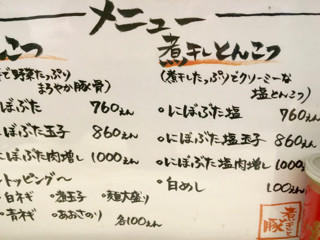 メニュー
んこつ
で野菜たっぷり
まろやか豚骨)
にぼぶた 760えん
にぼぶた玉子 860えん
にぼぶた肉増し 1000えん
トッピング〜
白ネギ ・煮玉子 ・麺大盛り
青ネギ ・あおさのり 各100えん
煮干しとんこつ
(煮干したっぷりでクリーミーな
塩とんこつ)
・にぼぶた塩 760えん
・にぼぶた塩玉子 860えん
・にぼぶた塩肉増し 1000えん
・白めし 100えん